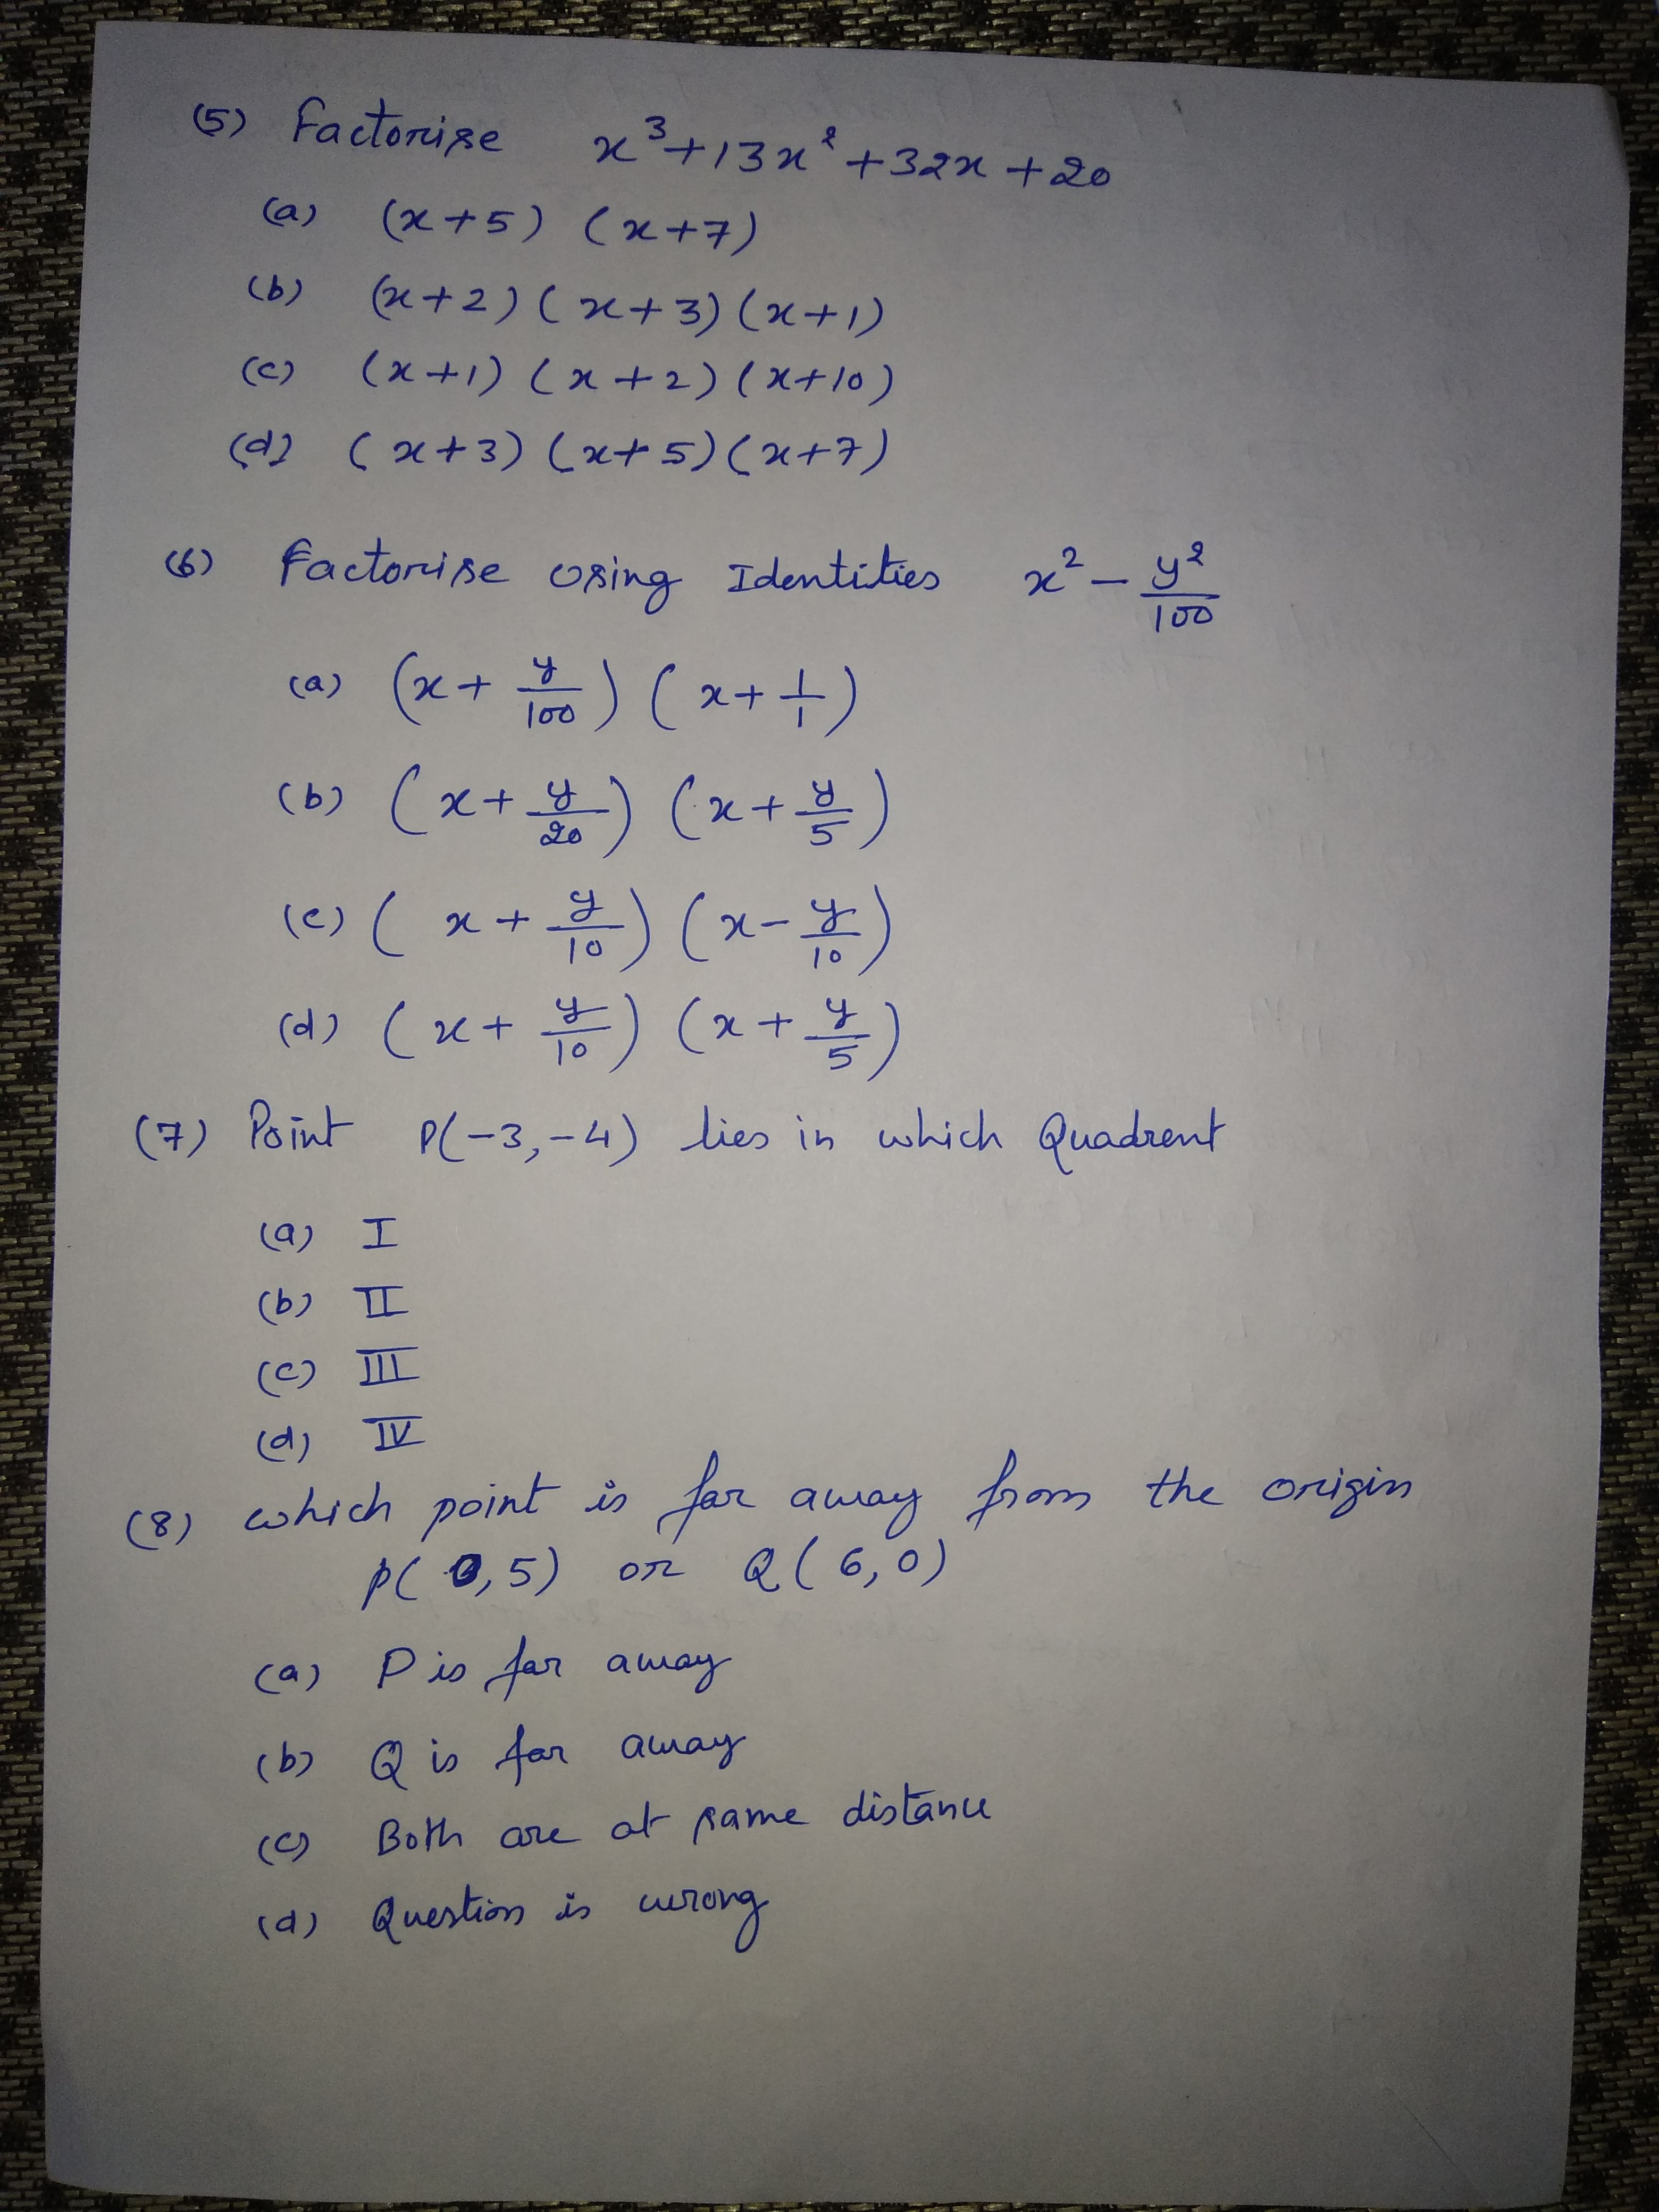 (5) Factorise x³+13x²+32x+20
(a) (x+5) (x+7)
(b) (x+2) (x+3) (x+1)
(c) (x+1) (x+2) (x+10)
(d) (x+3) (x+5) (x+7)
(6) Factorise using Identities x² - y²/100
(a) (x + y/100) (x + 1/1)
(b) (x + y/20) (x + y/5)
(c) (x + y/10) (x - y/10)
(d) (x + y/10) (x + y/5)
(7) Point P(-3,-4) lies in which Quadrent
(a) I
(b) II
(c) III
(d) IV
(8) which point is far away from the origin
P(0,5) or Q(6,0)
(a) P is far away
(b) Q is far away
(c) Both are at same distance
(d) Question is wrong